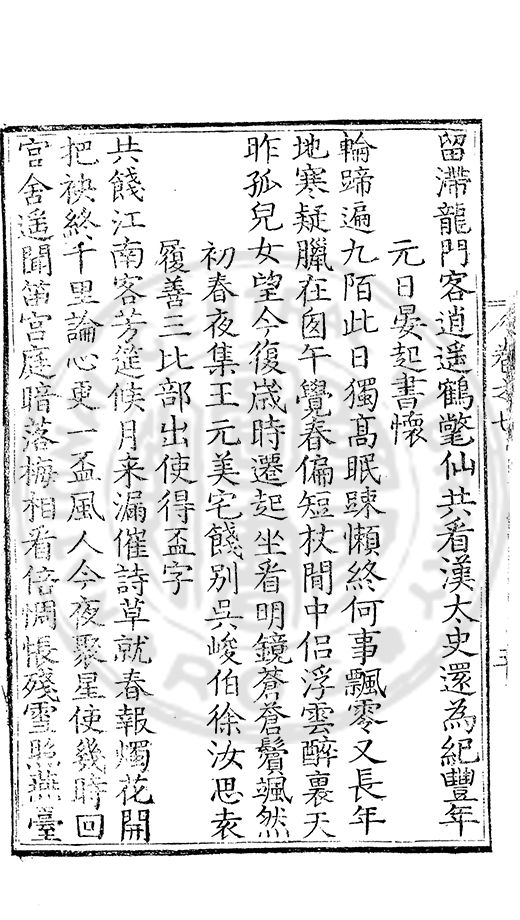 留滯龍門客逍遥鶴氅仙共看漢太史還為紀豐年
元日晏起書懷
輪蹄遍九陌此日獨髙眠踈懶終何事飄零又長年
地寒疑臘在囱午覺春偏短杖閒中侣浮雲醉裏天
昨孤兒女望今復歲時遷起坐看明鏡蒼蒼鬢颯然
初春夜集王元美宅餞别吳峻伯徐汝思袁
履善三比部出使得盃字
共餞江南客芳筵候月来漏催詩草就春報燭花開
把袂終千里論心更一盃風人今夜聚星使幾時回
官舍遥聞笛宫庭暗落梅相看倍惆悵殘雪照燕臺
卷之七